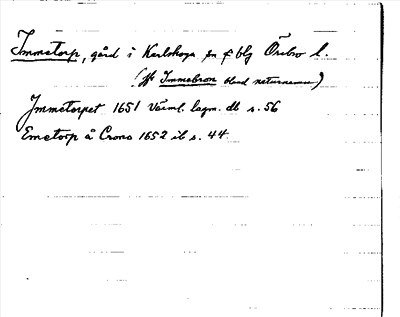 Immetorp, gård i Karlskoga sn o f blg Örebro l.
(Jfr Immebron bland naturnamnen)
Immetorpet 1651 Värml. lagm. db s. 56
Emetorp å Crono 1652 ib s. 44.